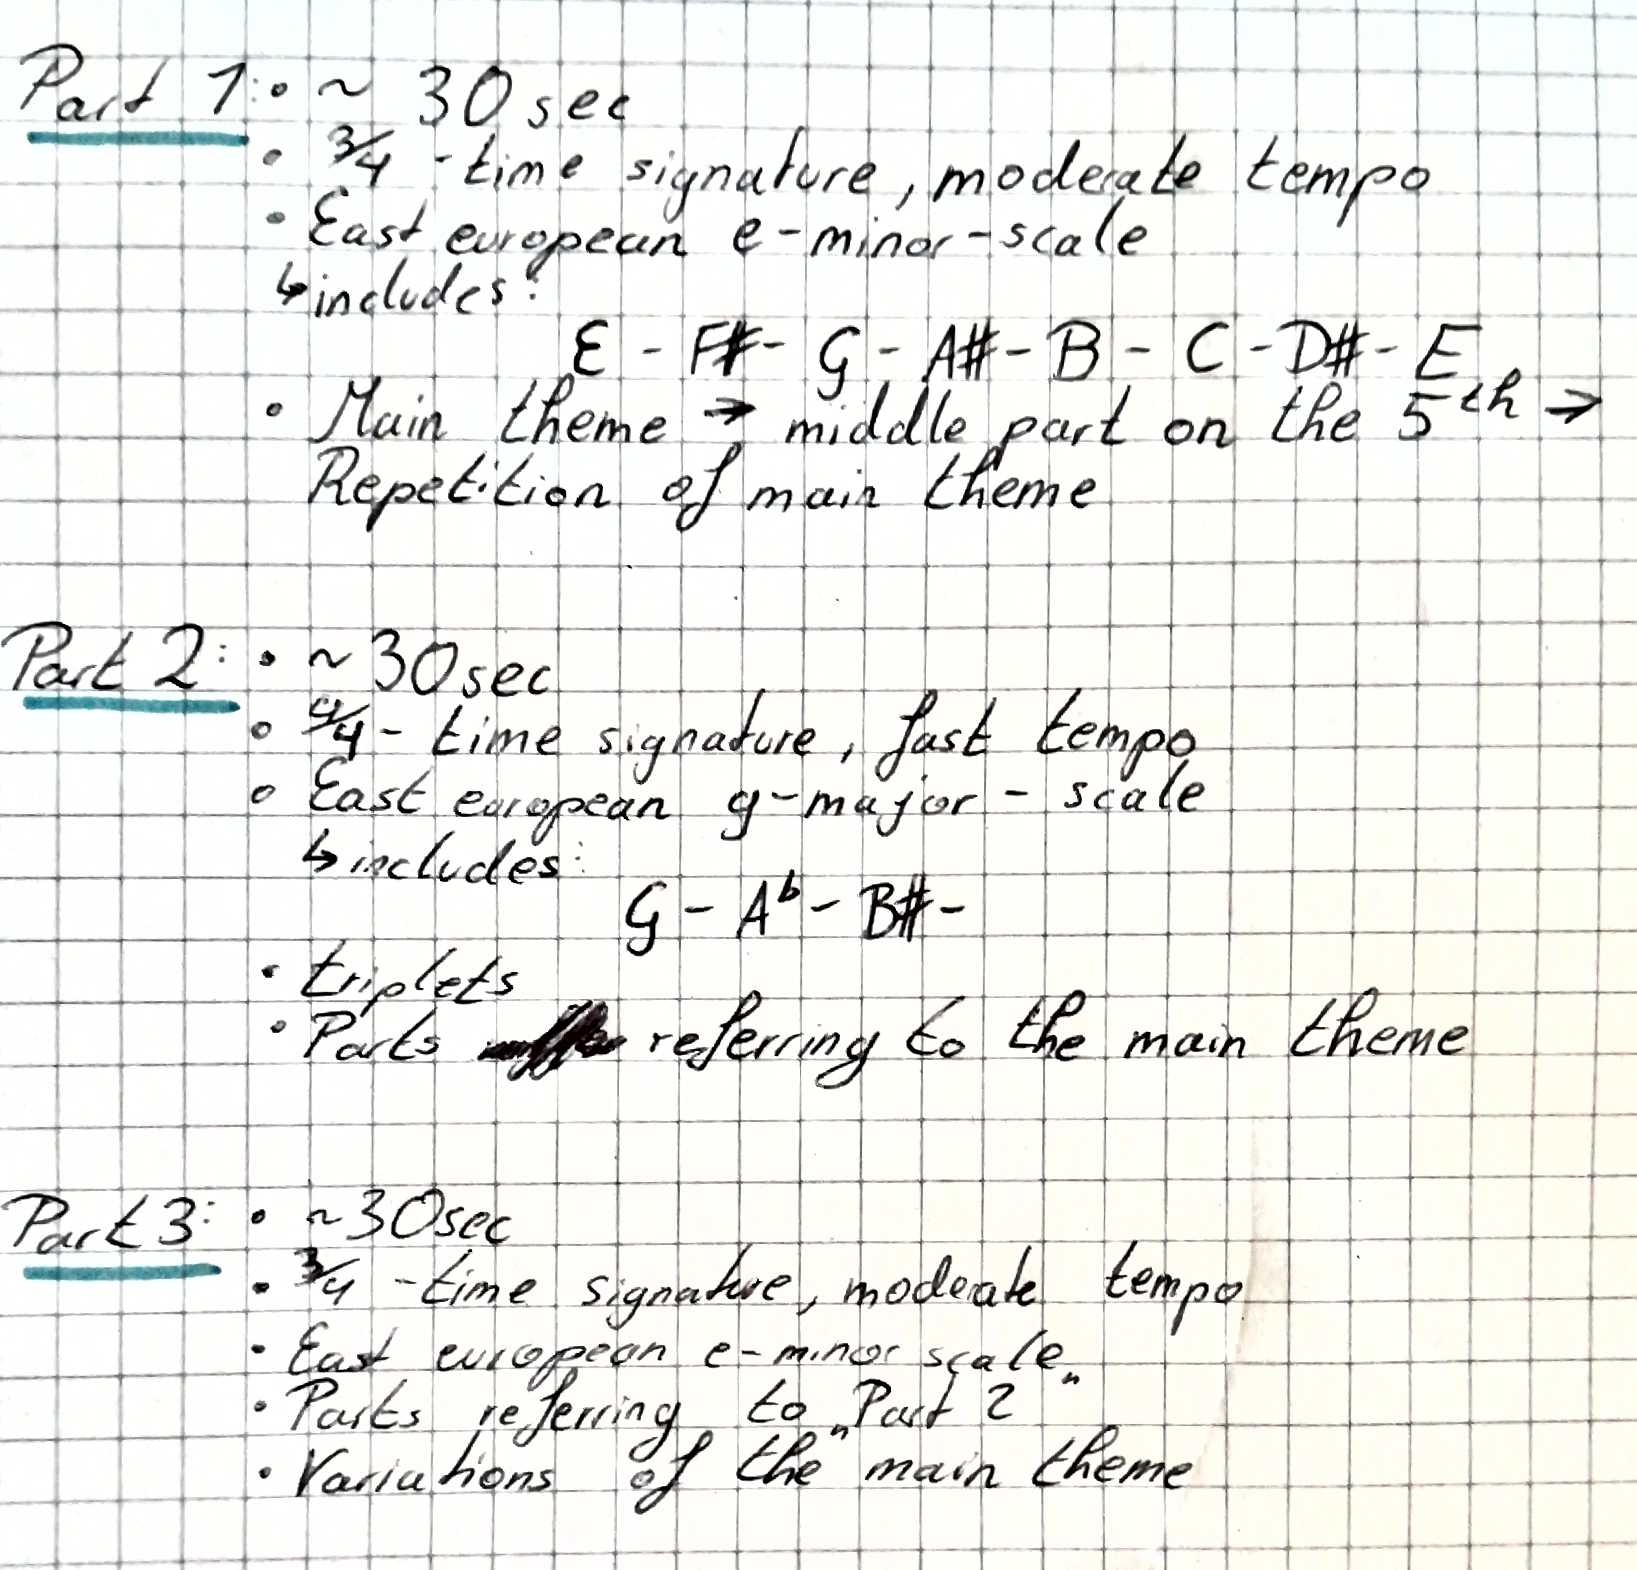 Part 1: • ~ 30 sec
• 3/4 - time signature, moderate tempo
• East european e-minor-scale
↳ includes:
E - F# - G - A# - B - C - D# - E
• Main theme → middle part on the 5th →
Repetition of main theme
Part 2: • ~ 30 sec
• 4/4 - time signature, fast tempo
• East european g-major-scale
↳ includes:
G - Ab - B# -
• triplets
• Parts referring to the main theme
Part 3: • ~ 30 sec
• 3/4 - time signature, moderate tempo
• East european e-minor scale
• Parts referring to „Part 2"
• Variations of the main theme